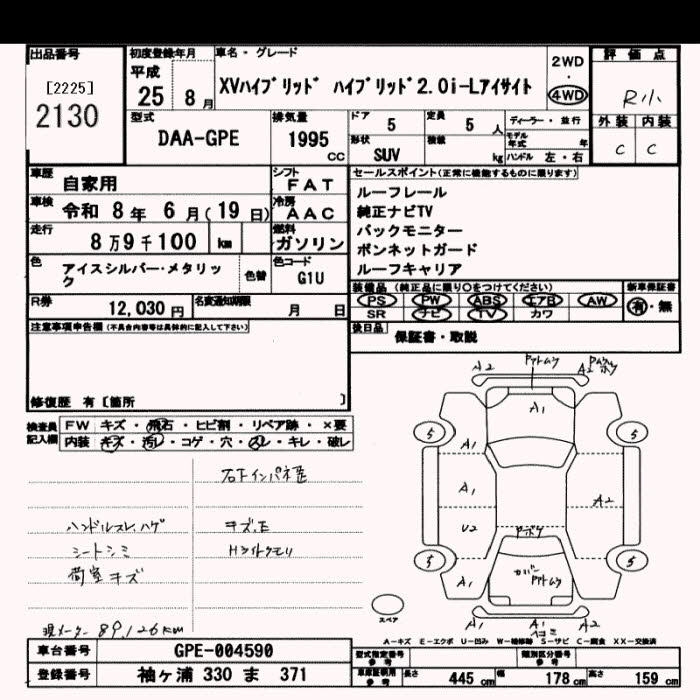 出品番号
[2225]
2130
初度登録年月
平成
25 8月
車名・グレード
XVハイブリッド ハイブリッド2.0i-Lアイサイト
2WD
・
4WD
評価点
R小
外装 内装
C C
型式
DAA-GPE
排気量
1995
CC
ドア 5
定員 5 人
形状 SUV
積載 kg
ディーラー・並行
モデル年式 年
ハンドル 左・右
車歴 自家用
車検 令和 8年 6月(19日)
走行 8万9千100 km
色 アイスシルバー・メタリック
色替
シフト FAT
冷房 AAC
燃料 ガソリン
色コード G1U
R券 12,030円
名変通知期限 月 日
セールスポイント(正常に機能するものに限ります)
ルーフレール
純正ナビTV
バックモニター
ボンネットガード
ルーフキャリア
装備品 (純正品に限り○をつけてください)
PS PW ABS エアB AW
SR ナビ TV カワ
新車保証書
有・無
後日品 保証書・取説
注意事項申告欄(不具合内容等は具体的に記入して下さい)
修復歴 有〔箇所 〕
検査員記入欄
FW キズ・飛石・ヒビ割・リペア跡・×要
内装 キズ・汚レ・コゲ・穴・スレ・キレ・破レ
ハンドルスレ、ハゲ
シートシミ
荷室キズ
現メーター 89,126km
キズ、E
Hライトクモリ
A2
A2
A1
5
5
A1
A1
A2
U2
5
5
A1
A1
A1
A1
A2
スペア
A-キズ E-エクボ U-凹み W-補修跡 S-サビ C-腐食 XX-交換済
車台番号 GPE-004590
登録番号 袖ヶ浦 330 ま 371
型式指定番号 参考
類別区分番号 参考
車庫証明用 参考
長さ 445cm 幅 178cm 高さ 159cm